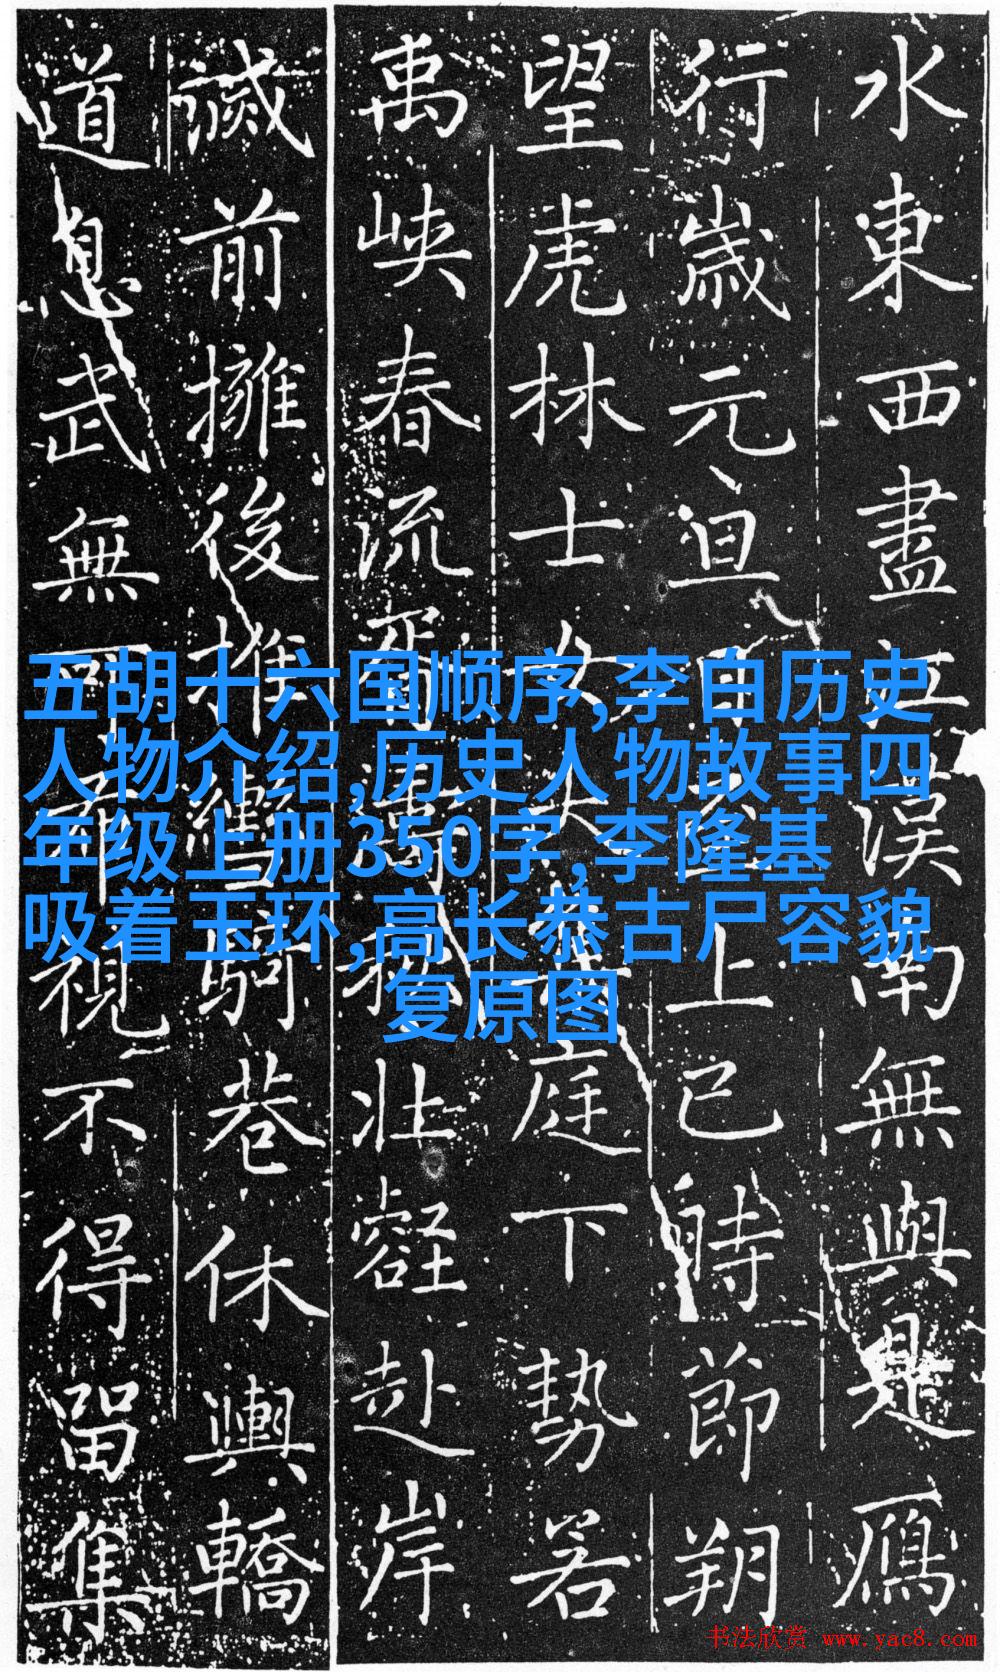 水東西盡江漢南無與是鴈
行歲元旦上巳時節朔
望虎林士女夫庭下勢若
禹峽春流蜀秋壯壑赴岸
前擁後推騎巷休輿轎
道息武無視不得留集
五胡十六国顺序,李白历史
人物介绍,历史人物故事四
年级上册350字,李隆基
吸着玉环,高长恭古尸容貌
复原图
书法欣赏 www.yac8.com